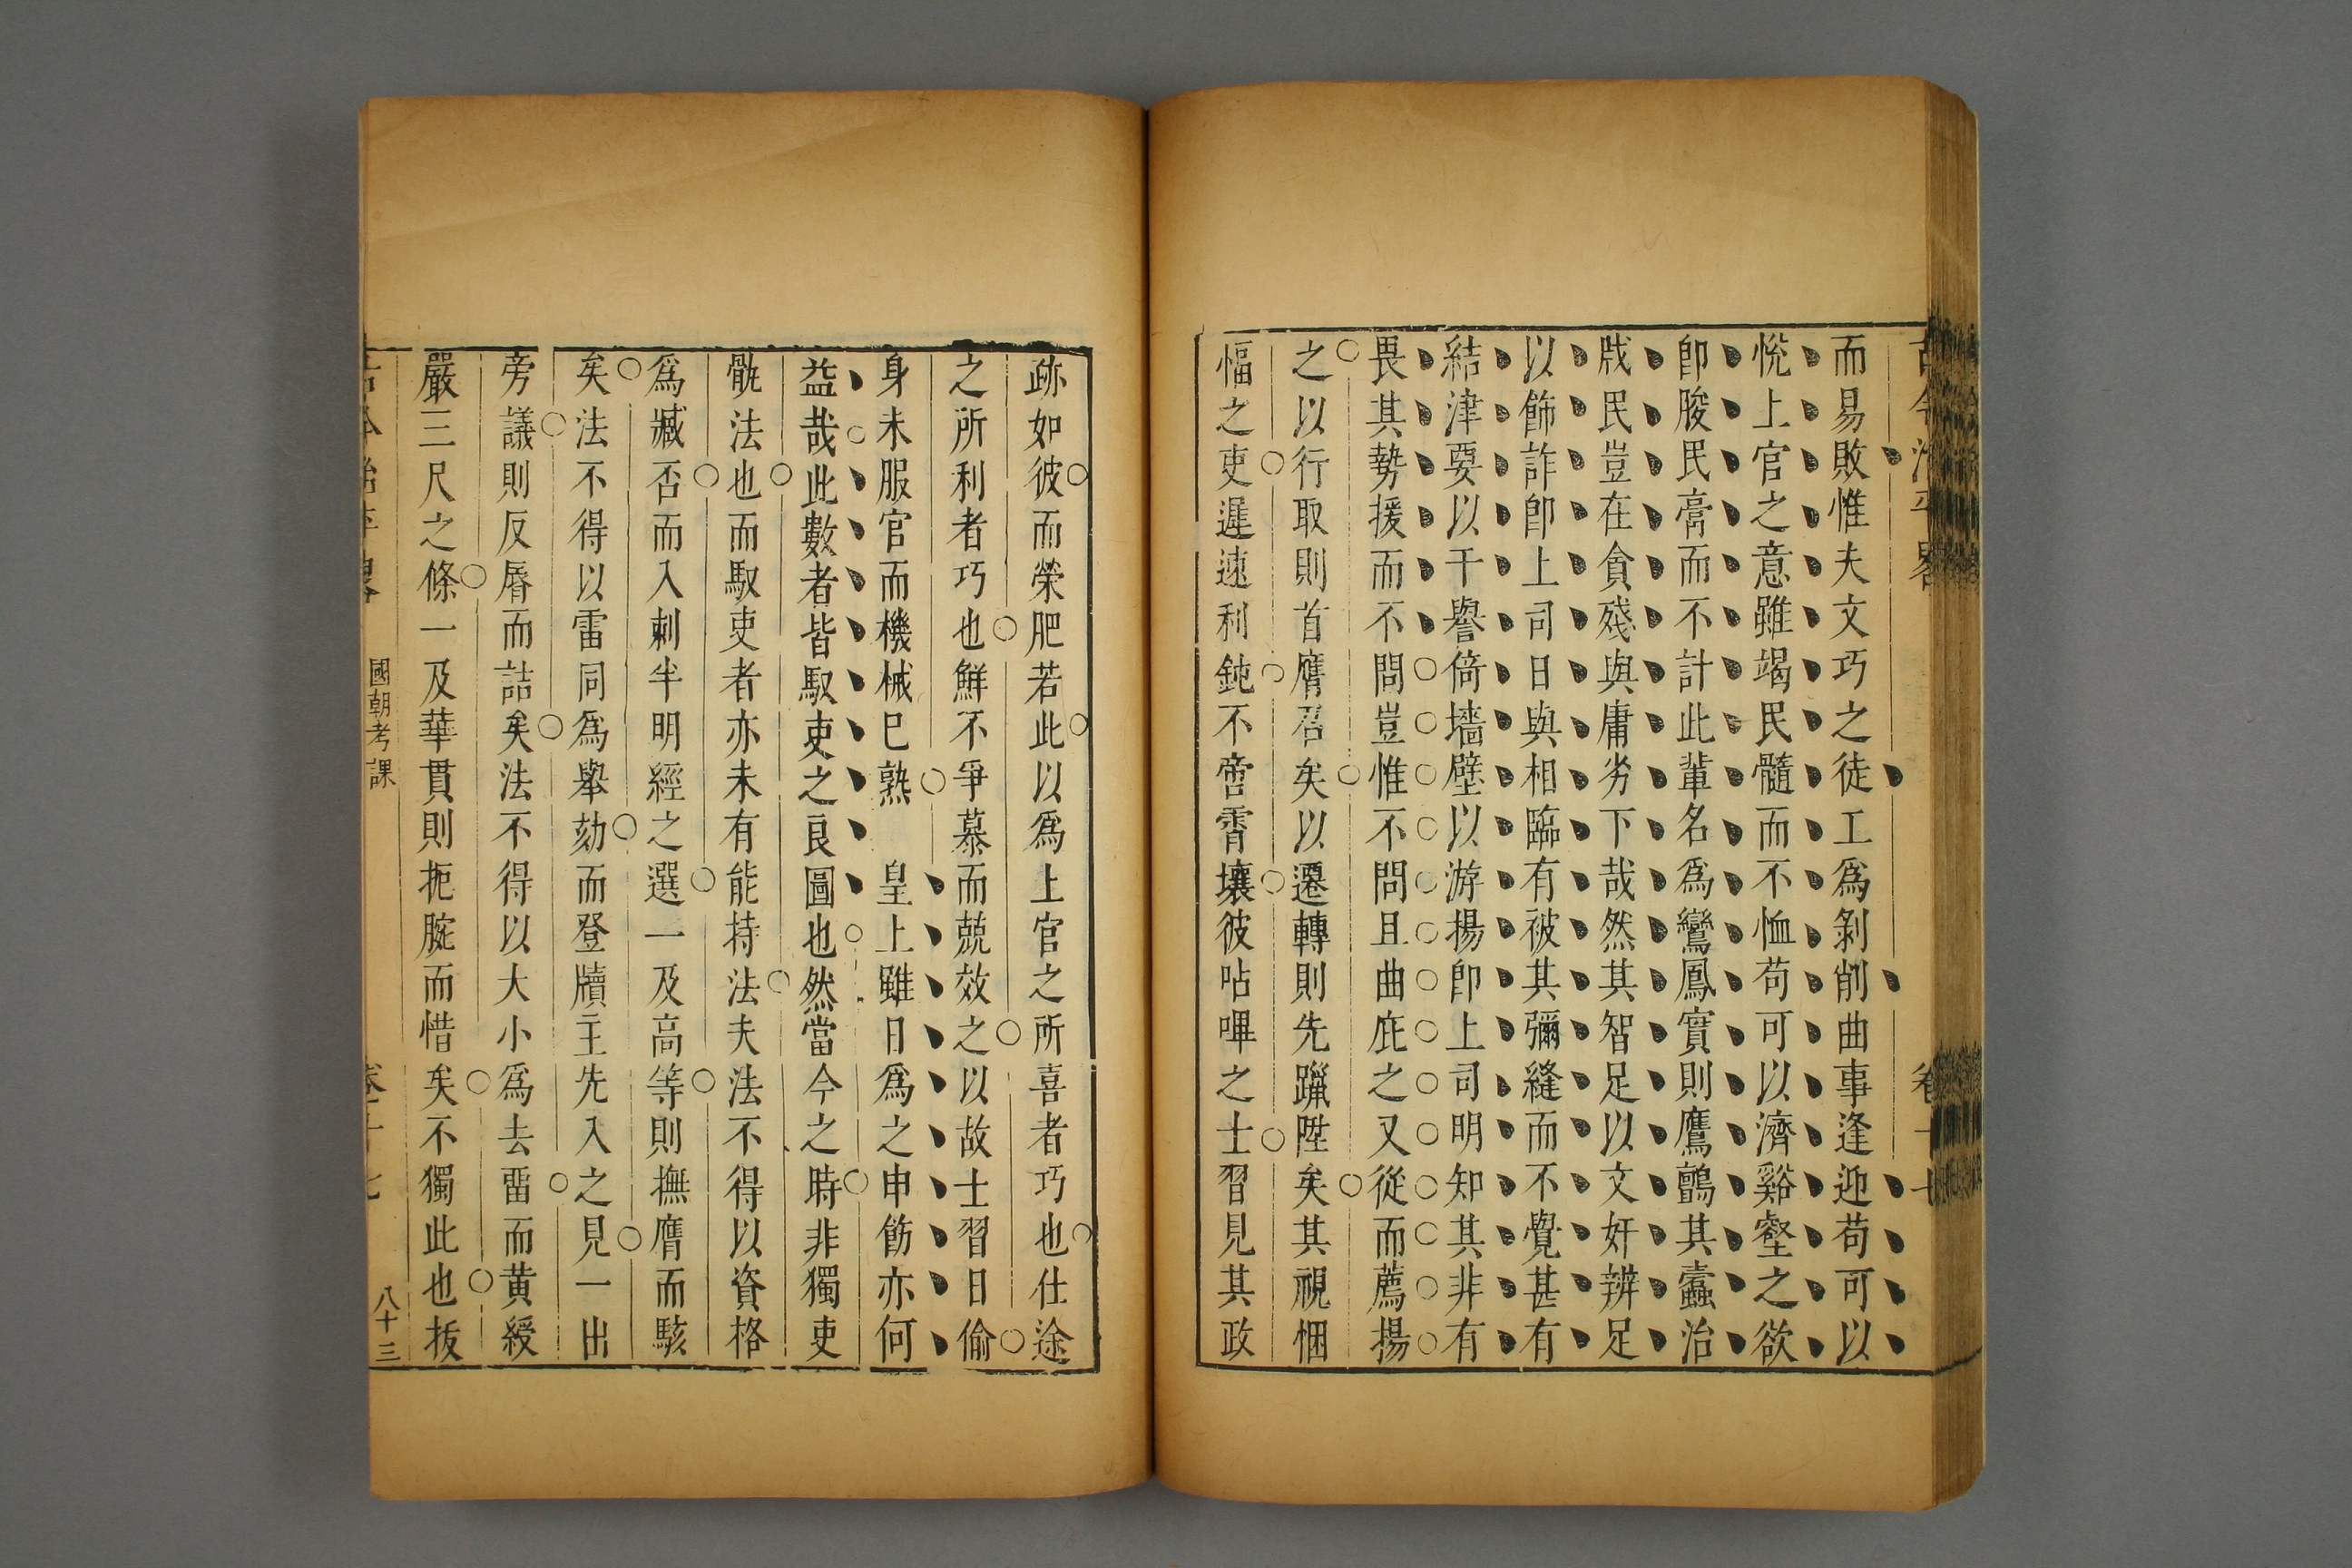 古今治平畧 卷十七
而易敗惟夫文巧之徒工為剝削曲事逢迎苟可以
悅上官之意雖竭民髓而不恤苟可以濟谿壑之欲
卽朘民膏而不計此輩名為鸞鳳實則鷹鸇其蠹治
戕民豈在貪殘與庸劣下哉然其智足以文奸辨足
以飾詐卽上司日與相臨有被其彌縫而不覺甚有
結津要以干譽倚墻壁以游揚卽上司明知其非有
畏其勢援而不問豈惟不問且曲庇之又從而薦揚
之以行取則首膺召矣以遷轉則先躐陞矣其視悃
愊之吏遲速利鈍不啻霄壤彼呫嗶之士習見其政
跡如彼而榮肥若此以為上官之所喜者巧也仕途
之所利者巧也鮮不爭慕而兢效之以故士習日偷
身未服官而機械已熟 皇上雖日為之申飭亦何
益哉此數者皆馭吏之良圖也然當今之時非獨吏
骫法也而馭吏者亦未有能持法夫法不得以資格
為臧否而入剌半明經之選一及高等則撫膺而駭
矣法不得以雷同為舉劾而登牘主先入之見一出
旁議則反脣而詰矣法不得以大小為去畱而黃綬
嚴三尺之條一及華貫則扼腕而惜矣不獨此也拔
古今治平畧 國朝考課 卷十七 八十三